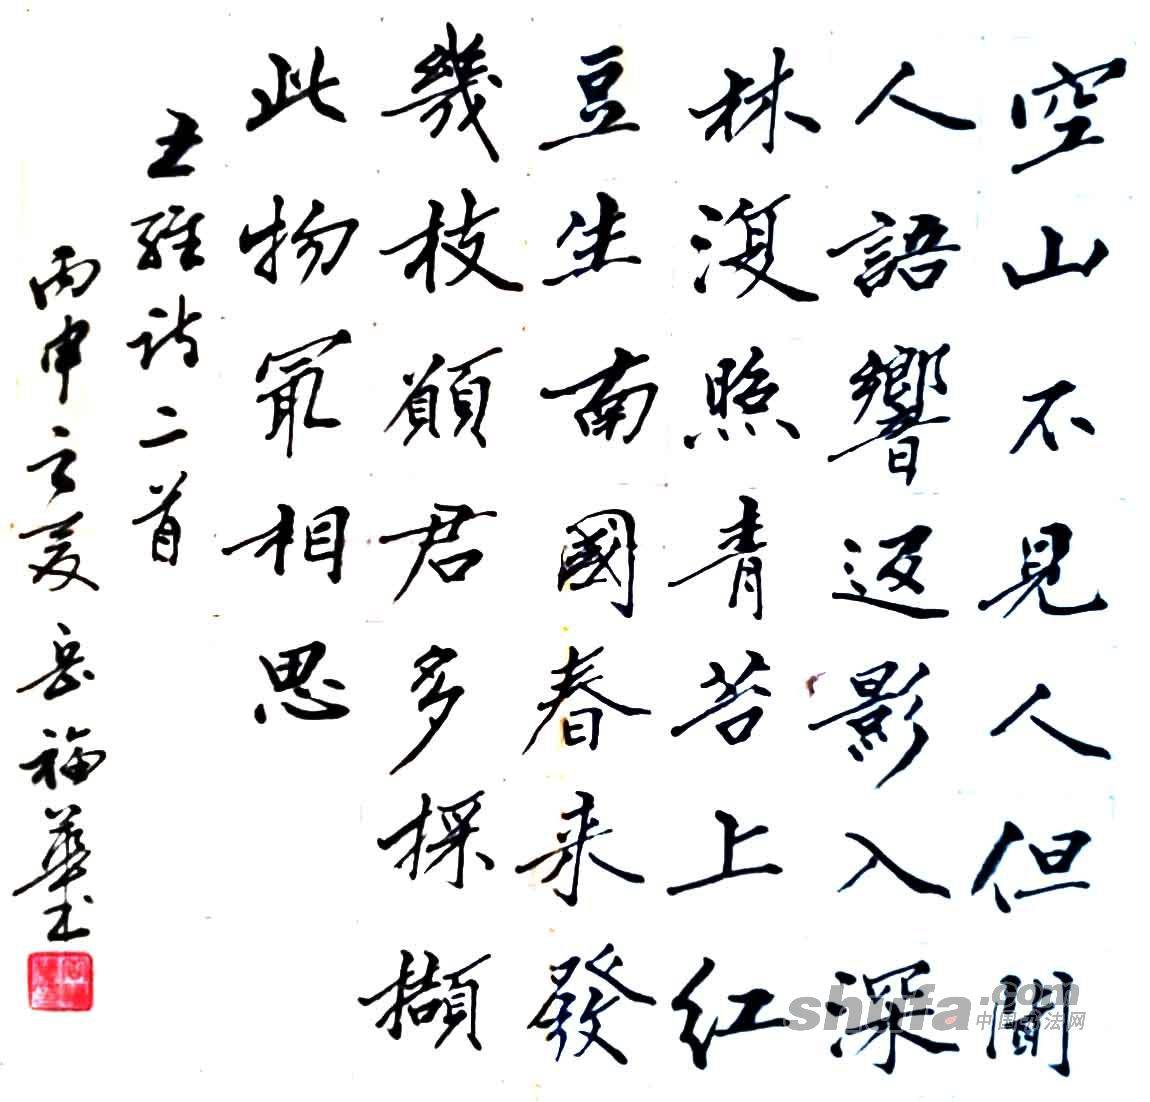 空山不見人但聞
人語響返影入深
林復照青苔上红
豆生南國春来發
幾枝願君多採擷
此物最相思
王維诗二首
丙申之夏岳福華书
shufa.com
中国书法网